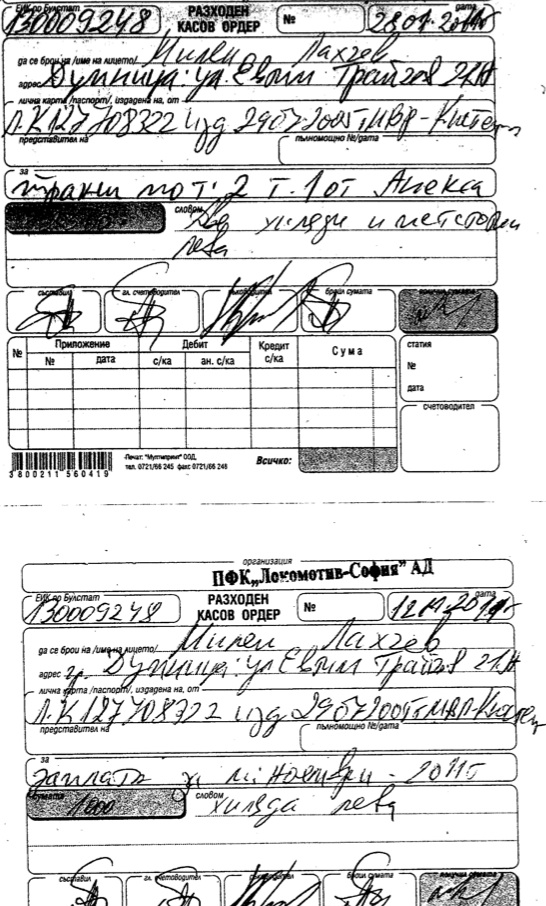 ЕИК по Булстат
130009248
РАЗХОДЕН
КАСОВ ОРДЕР
№
дата
да се брои на /име на лицето/ Милен Лахчев
адрес Дупница: ул. Евтим Трайчев
лична карта /паспорт/, издадена на, от
Л.К 127708322 изд
представител на
пълномощно №/дата
за
транш по т. 2 т. 1 от Анекса
словом Две хиляди и петстотин
лева
съставил
гл. счетоводител
ръководител
броил сумата
получил сумата
№ Приложение Дебит Кредит Сума
№ дата с/ка ан. с/ка с/ка
статия
№
дата
счетоводител
Всичко:
3 800211 560419
Печат: "Мултипринт" ООД,
тел. 0721/66 245 факс 0721/66 246
организация
ПФК„Локомотив-София” АД
ЕИК по Булстат
130009248
РАЗХОДЕН
КАСОВ ОРДЕР
№
дата
да се брои на /име на лицето/ Милен Лахчев
адрес гр. Дупница: ул Евтим Трайчев
лична карта /паспорт/, издадена на, от
Л.К 127708322 изд
представител на
пълномощно №/дата
за
заплата ноември - 2011г
сумата
1000
словом
хиляда лева
съставил
гл. счетоводител
ръководител
броил сумата
получил сумата